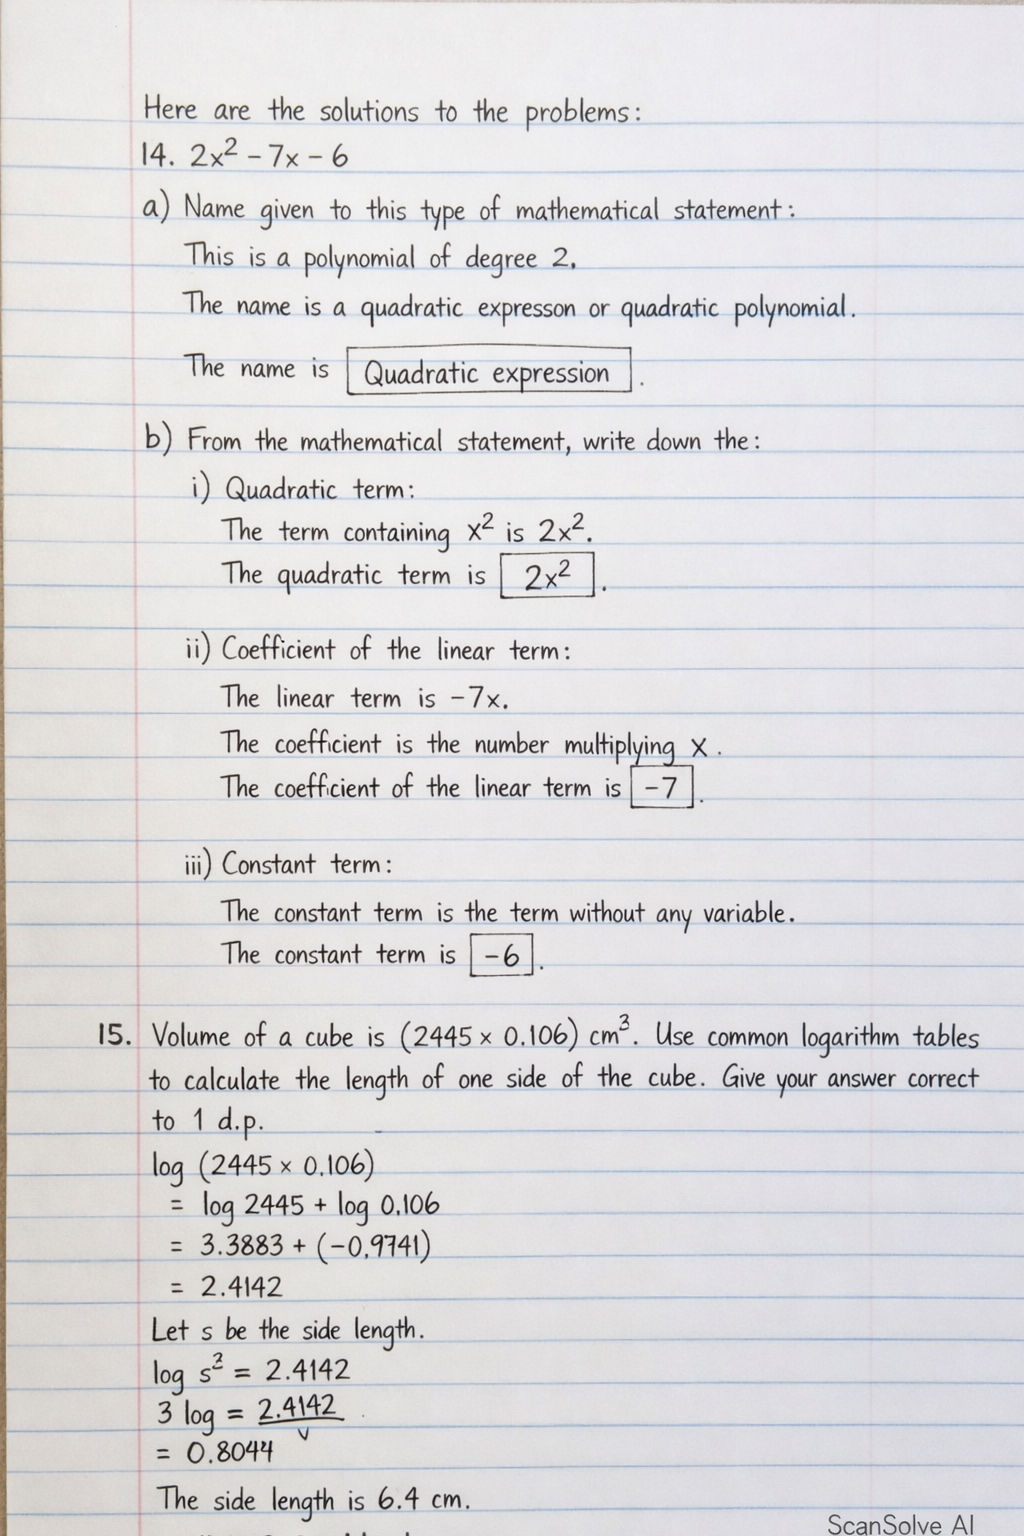 Here are the solutions to the problems:
14. 2x² - 7x - 6
a) Name given to this type of mathematical statement:
This is a polynomial of degree 2.
The name is a quadratic expresson or quadratic polynomial.
The name is Quadratic expression.
b) From the mathematical statement, write down the:
i) Quadratic term:
The term containing x² is 2x².
The quadratic term is 2x².
ii) Coefficient of the linear term:
The linear term is -7x.
The coefficient is the number multiplying x.
The coefficient of the linear term is -7.
iii) Constant term:
The constant term is the term without any variable.
The constant term is -6.
15. Volume of a cube is (2445 × 0.106) cm³. Use common logarithm tables
to calculate the length of one side of the cube. Give your answer correct
to 1 d.p.
log (2445 × 0.106)
= log 2445 + log 0.106
= 3.3883 + (-0.9741)
= 2.4142
Let s be the side length.
log s³ = 2.4142
3 log = 2.4142
= 0.8044
The side length is 6.4 cm.
ScanSolve AI